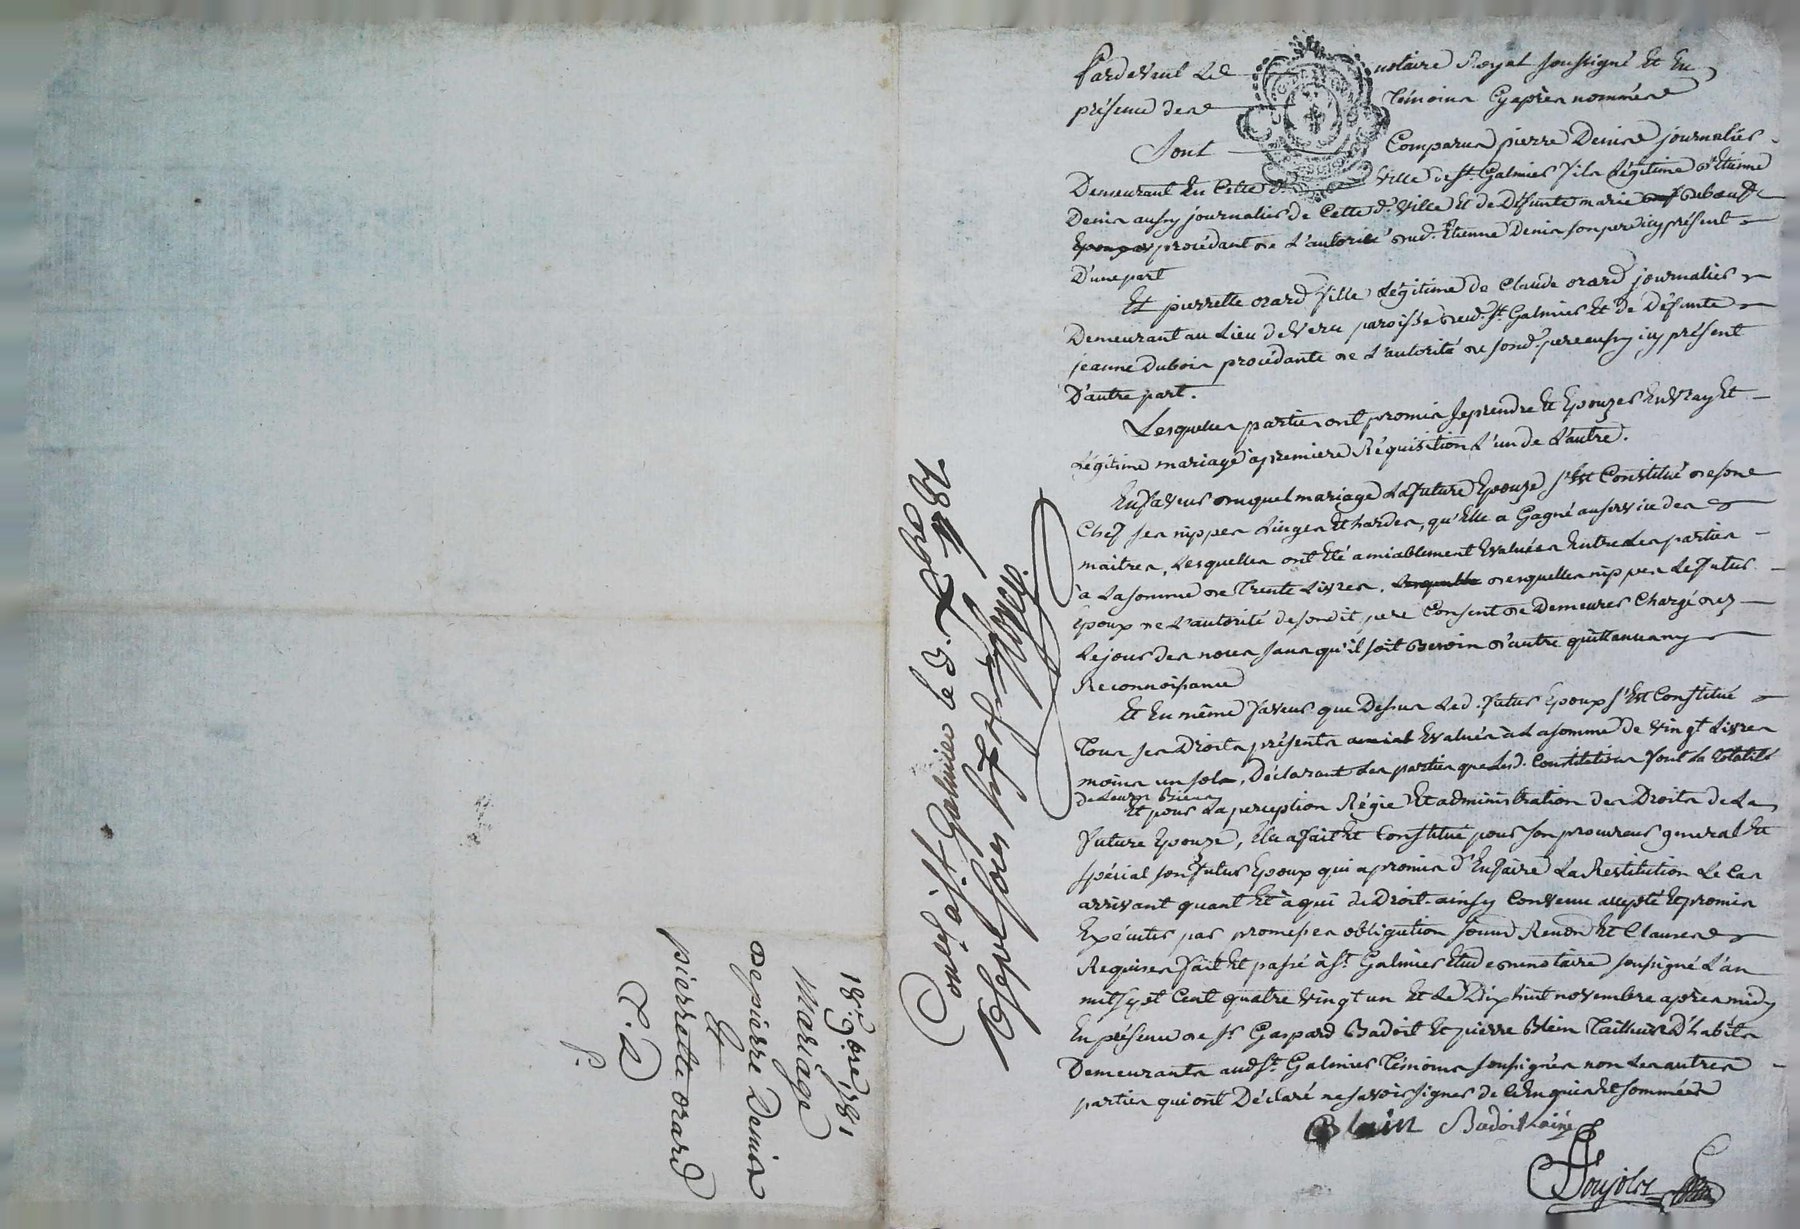 Pardevant Le notaire Royal soussigné Et En
présence des Témoins Cyaprès nommés
Sont Comparus pierre Denis journalier
Demeurant En Cette d. Ville de St. Galmier fils Légitime d'Etienne
Denis aussy journalier de Cette d. Ville Et de Défunte marie Dubœuf
procédant de L'autorité dud. Etienne Denis son pere icy présent
D'une part
Et pierrette orard fille Légitime de Claude orard journalier
Demeurant au Lieu de Veru paroisse dud. St. Galmier Et de Défunte
jeanne Dubois procédante de L'autorité de sond. pere aussy icy présent
D'autre part.
Lesquelles parties ont promis se prendre Et Epouzer En Vray Et
Légitime mariage à premiere Réquisition L'un de L'autre.
En faveur duquel mariage La future Epouze s'Est Constitué de son
Chef ses nippes Linges Et hardes, qu'Elle a Gagné au service des
maitres, Lesquelles ont Eté amiablement Evaluées Entre Les parties
à La somme de Trente Livres. desquelles nippes Le futur
Epoux de L'autorité de sondit pere Consent de Demeurer Chargé dez
Le jour des noces sans qu'il soit Besoin d'autre quittance ny
Reconnoissance
Et En même faveur que Dessus Led. futur Epoux s'Est Constitué
Tous ses Droits présents Evalués à La somme de Vingt Livres
moins un sols, Déclarant Les parties que Lesd. Constitutions font La totalité
de Leurs Biens
Et pour La perception Régie Et administration des Droits de La
future Epouze, Elle a fait Et Constitué pour son procureur general Et
spécial son futur Epoux qui a promis d'En faire La Restitution Le Cas
arrivant quant Et à qui de Droit. ainsy Convenu accepté Et promis
Exécuter par promesses obligation soumd. Renon. Et Clauses
Requises fait Et passé à St. Galmier Etude du notaire soussigné L'an
mil sept Cent quatre Vingt un Et Le Dix huit novembre après midy
En présence de Sr. Gaspard Badoit Et pierre Blein Tailleur D'habits
Demeurants aud. St. Galmier Témoins soussignés non Les autres
parties qui ont Déclaré ne savoir signer de Ce Enquis Et sommées
Blein Badoit Lainé
Poujols
Controlé à St. Galmier le d. 1781
18e. 9bre. 1781
Mariage
De pierre Denis
Et
pierrette orard